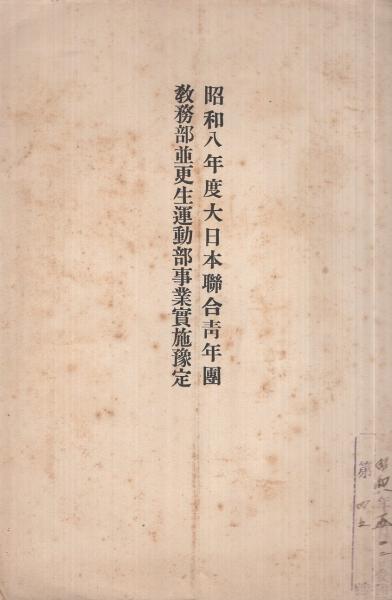 昭和八年度大日本聯合靑年團
敎務部並更生運動部事業實施豫定
第